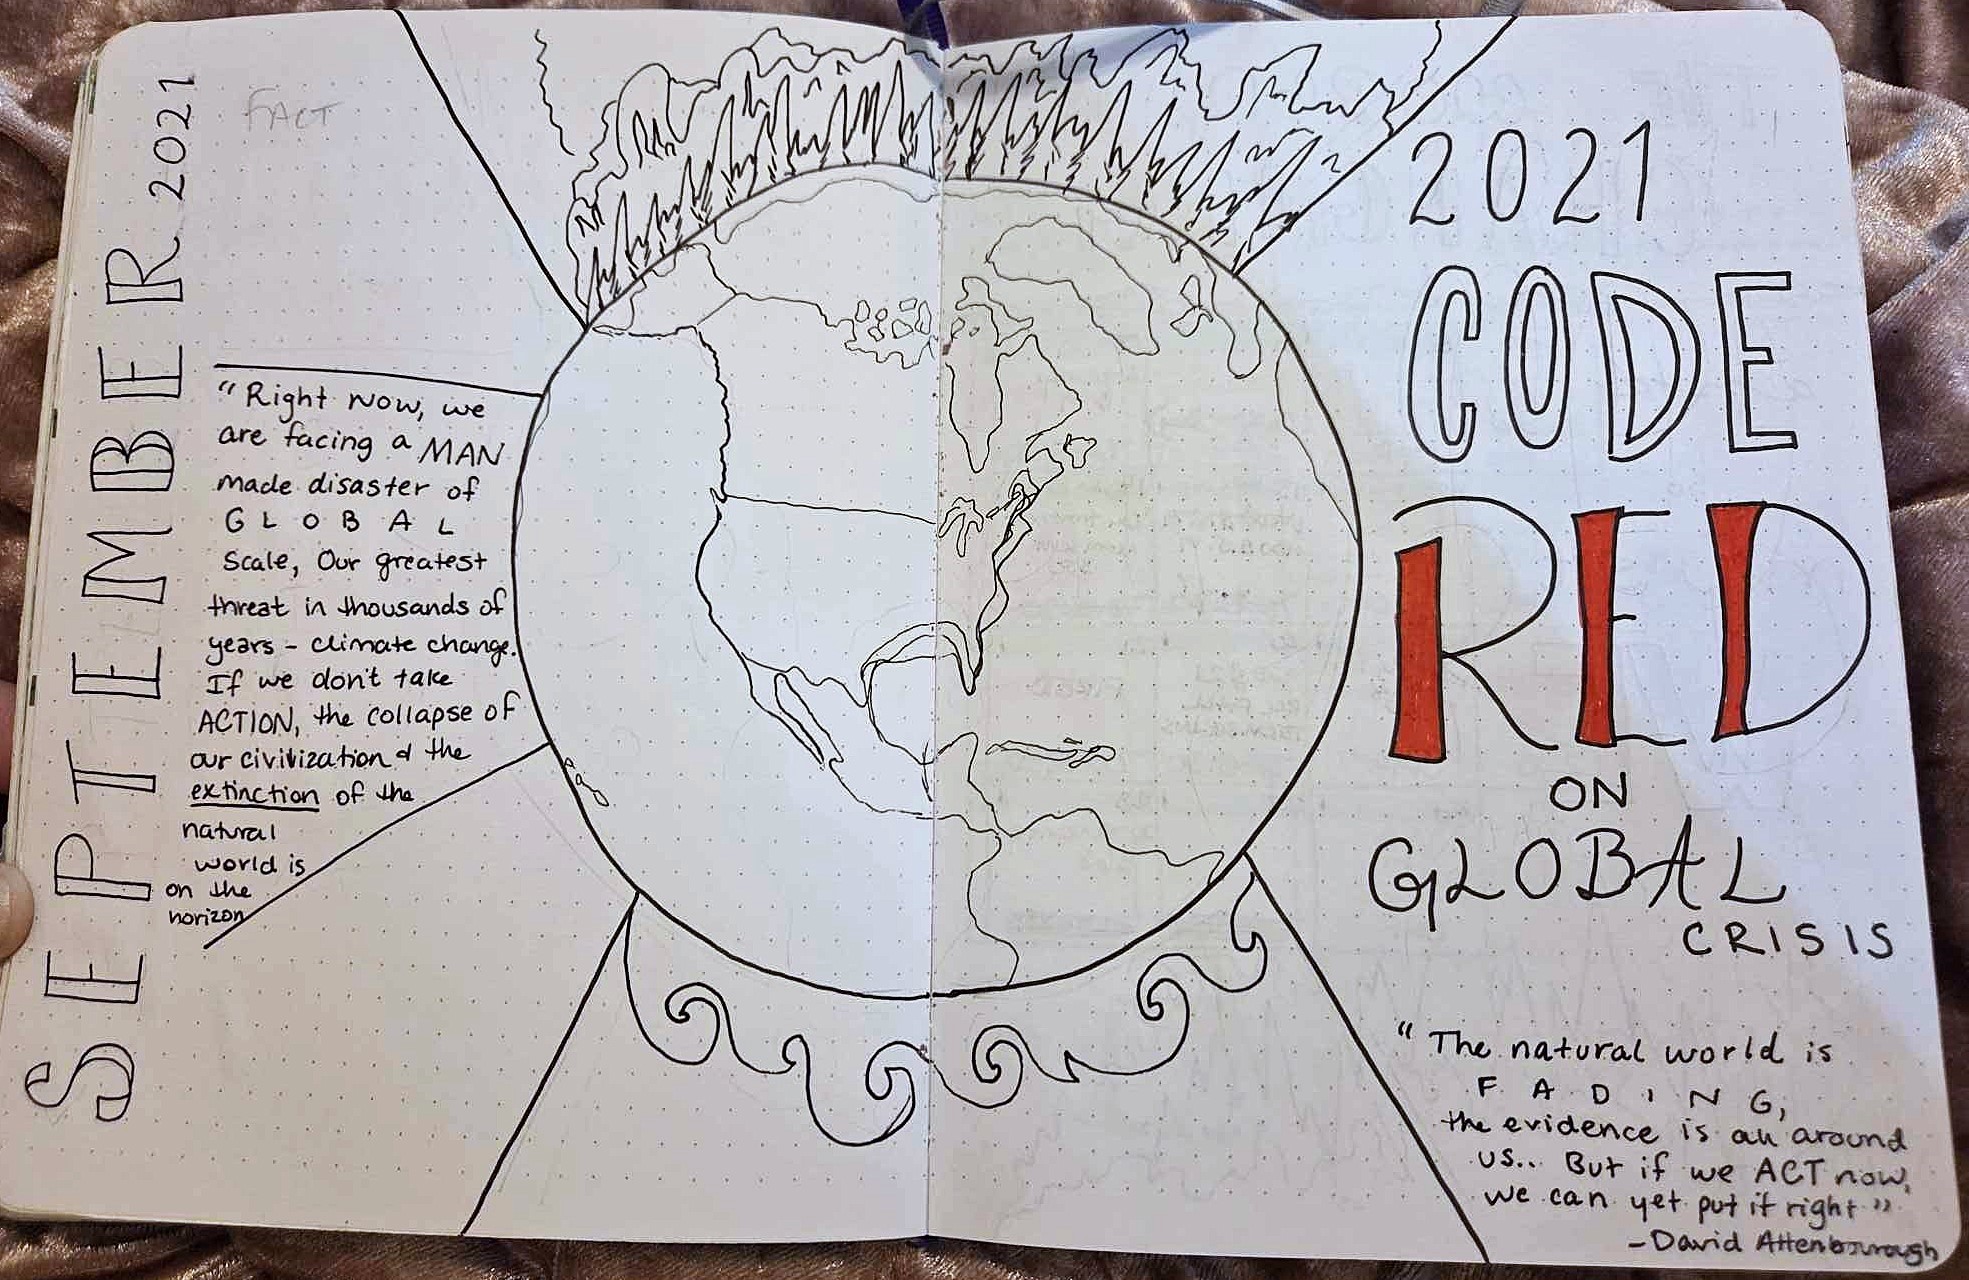 SEPTEMBER 2021
FACT
"Right now, we
are facing a MAN
made disaster of
GLOBAL
Scale, Our greatest
threat in thousands of
years - climate change.
If we don't take
ACTION, the collapse of
our civilization & the
extinction of the
natural
world is
on the
horizon
2021
CODE
RED
ON
GLOBAL
CRISIS
"The natural world is
FADING,
the evidence is all around
us... But if we ACT now,
we can yet put it right"
-David Attenbourough